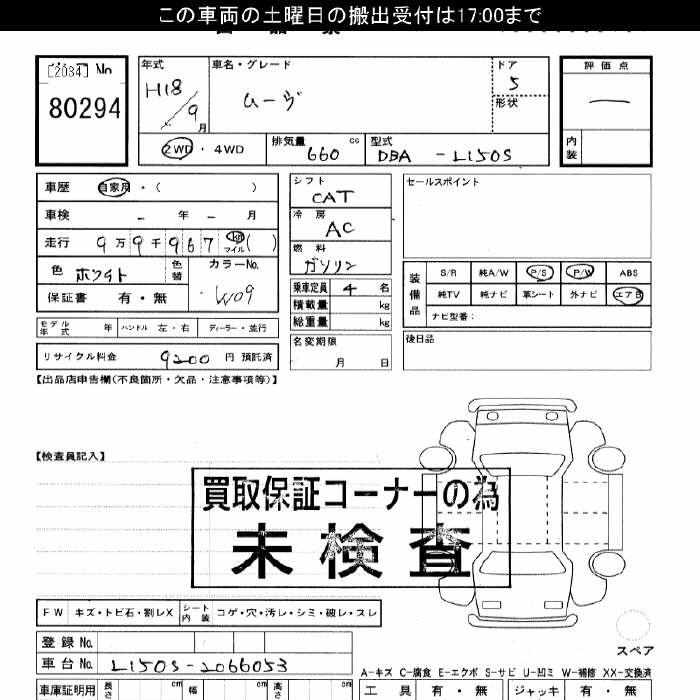 この車両の土曜日の搬出受付は17:00まで
[2034] No
80294
年式 H18/9月
車名・グレード ムーヴ
ドア 5
形状
評価点 —
内装
2WD・4WD
排気量 660 cc
型式 DBA - L150S
車歴 自家用・( )
車検 - 年 - 月
走行 9万9千967 km マイル( )
色 ホワイト 色替
カラーNo. W09
保証書 有・無
シフト CAT
冷房 AC
燃料 ガソリン
乗車定員 4 名
積載量 kg
総重量 kg
セールスポイント
装備品
S/R 純A/W P/S P/W ABS
純TV 純ナビ 革シート 外ナビ エアB
ナビ型番:
モデル年式 年 ハンドル 左・右 ディーラー・並行
リサイクル料金 9200 円 預託済
名変期限 月 日
後日品
【出品店申告欄(不良箇所・欠品・注意事項等)】
【検査員記入】
買取保証コーナーの為
未検査
FW キズ・トビ石・割レX シート内装 コゲ・穴・汚レ・シミ・破レ・スレ
登録No.
車台No. L150S-2066053
スペア
A-キズ C-腐食 E-エクボ S-サビ U-凹ミ W-補修 XX-交換済
車庫証明用 長さ cm 幅 cm 高さ cm
工具 有・無 ジャッキ 有・無